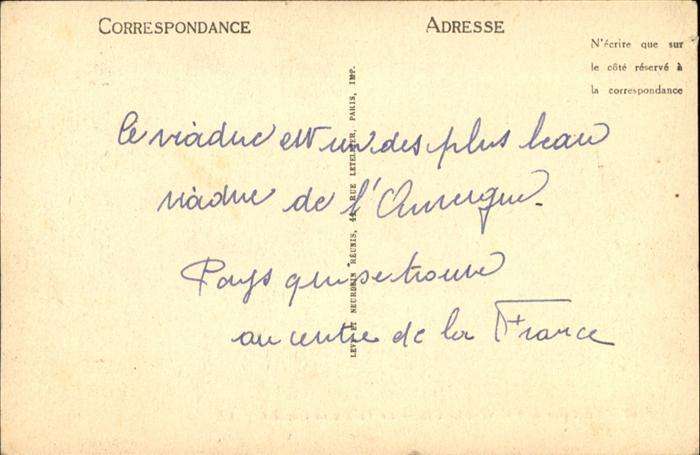 CORRESPONDANCE
ADRESSE
N'écrire que sur
le côté réservé à
la correspondance
LEVY ET NEURDEIN RÉUNIS, 44, RUE LETELLIER, PARIS, IMP.
le viaduc est un des plus beau
viaduc de l'Auvergne.
Pays qui se trouve
au centre de la France